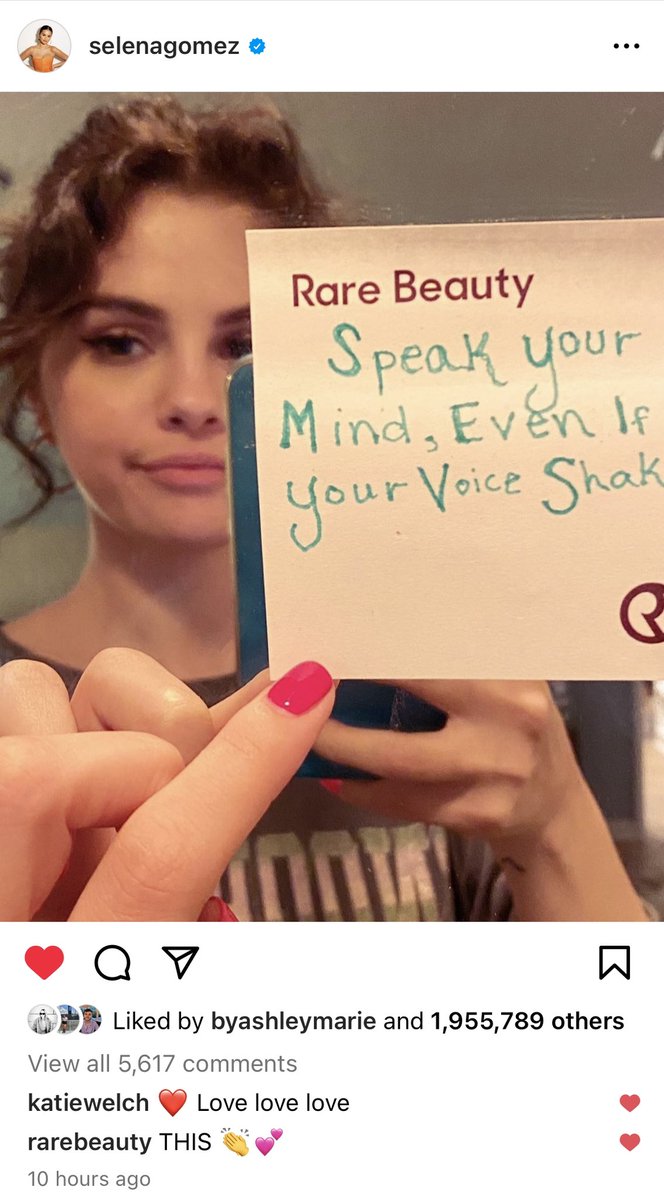 selenagomez
Rare Beauty
Speak your
Mind, Even If
your Voice Shak
R
Liked by byashleymarie and 1,955,789 others
View all 5,617 comments
katiewelch ❤️ Love love love
rarebeauty THIS 👏💕
10 hours ago